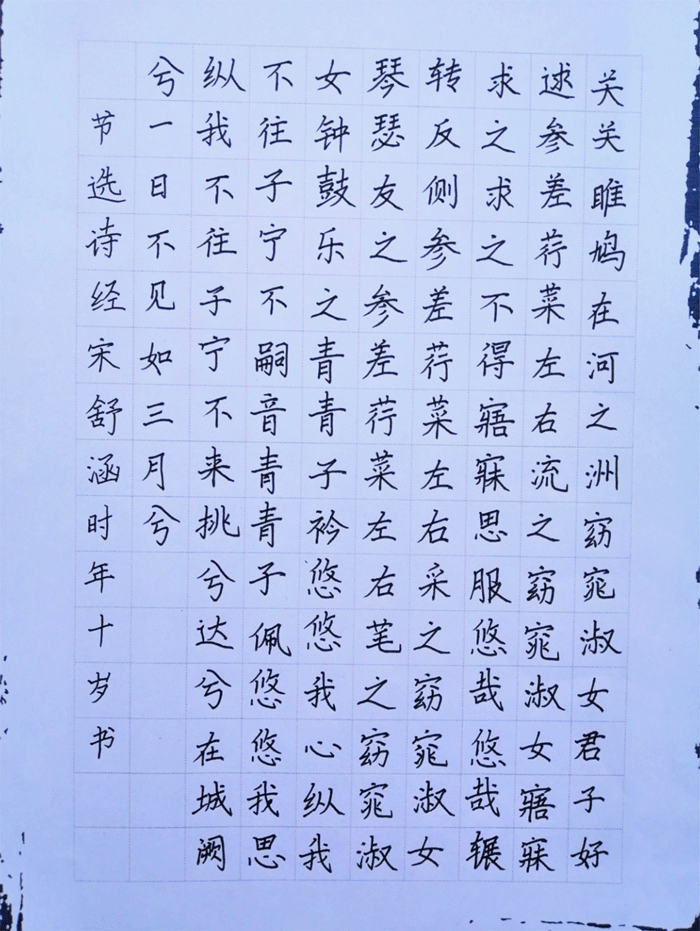 关关雎鸠在河之洲窈窕淑女君子好
逑参差荇菜左右流之窈窕淑女寤寐
求之求之不得寤寐思服悠哉悠哉辗
转反侧参差荇菜左右采之窈窕淑女
琴瑟友之参差荇菜左右芼之窈窕淑
女钟鼓乐之青青子衿悠悠我心纵我
不往子宁不嗣音青青子佩悠悠我思
纵我不往子宁不来挑兮达兮在城阙
兮一日不见如三月兮
节选诗经宋舒涵时年十岁书